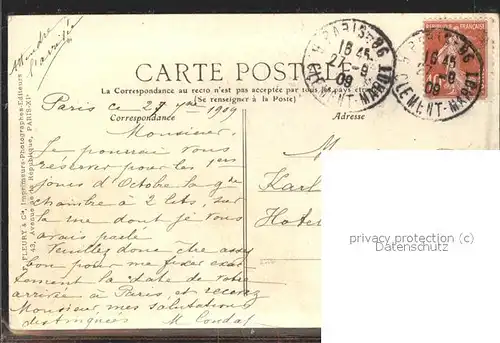 Attendre
l'arrivée
PARIS - 86
16 45
27 - 9
09
R. CLEMENT-MAROT
PARIS - 86
16 45
9
09
CLEMENT-MAROT
RÉPUBLIQUE FRANÇAISE
10
CARTE POSTALE
La Correspondance au recto n'est pas acceptée par tous les pays étrangers
(Se renseigner à la Poste)
Correspondance
Adresse
Paris ce 27 7bre 1909
Monsieur,
Je pourrai vous
réserver pour les 1ers
jours d'Octobre la gde
chambre à 2 lits, sur
la rue dont je vous
avais parlé
Veuillez donc être assez
bon pour me fixer exac
tement la date de votre
arrivée à Paris, et recevez
Monsieur, mes salutations
distinguées
M
Karl
Hotel
F. FLEURY & Cie, Imprimeurs-Photographes-Editeurs
43, Avenue de la République, PARIS-XIe
privacy protection (c)
Datenschutz